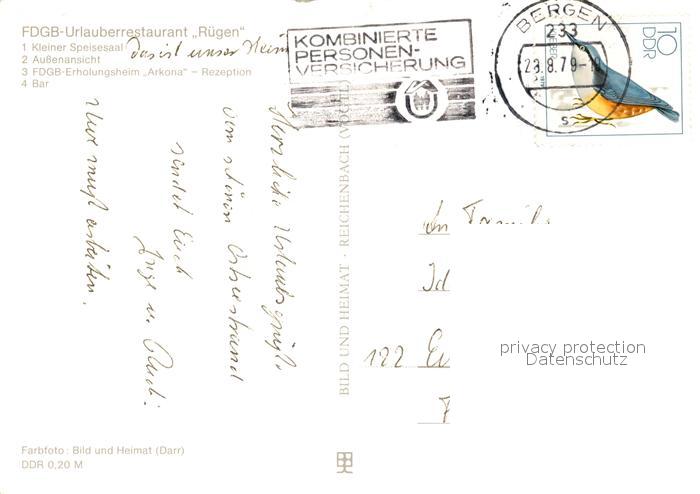 FDGB-Urlauberrestaurant „Rügen"
1 Kleiner Speisesaal
das ist unser Heim
2 Außenansicht
3 FDGB-Erholungsheim „Arkona" – Rezeption
4 Bar
KOMBINIERTE
PERSONEN-
VERSICHERUNG
BERGEN
233
23.8.79-
s
10
DDR
Herzliche Urlaubsgrüße
vom schönen Ostseestrand
sendet Euch
Inge u. Rudi.
BILD UND HEIMAT · REICHENBACH (VOGTL)
An Familie
122
privacy protection
Datenschutz
Farbfoto: Bild und Heimat (Darr)
DDR 0,20 M